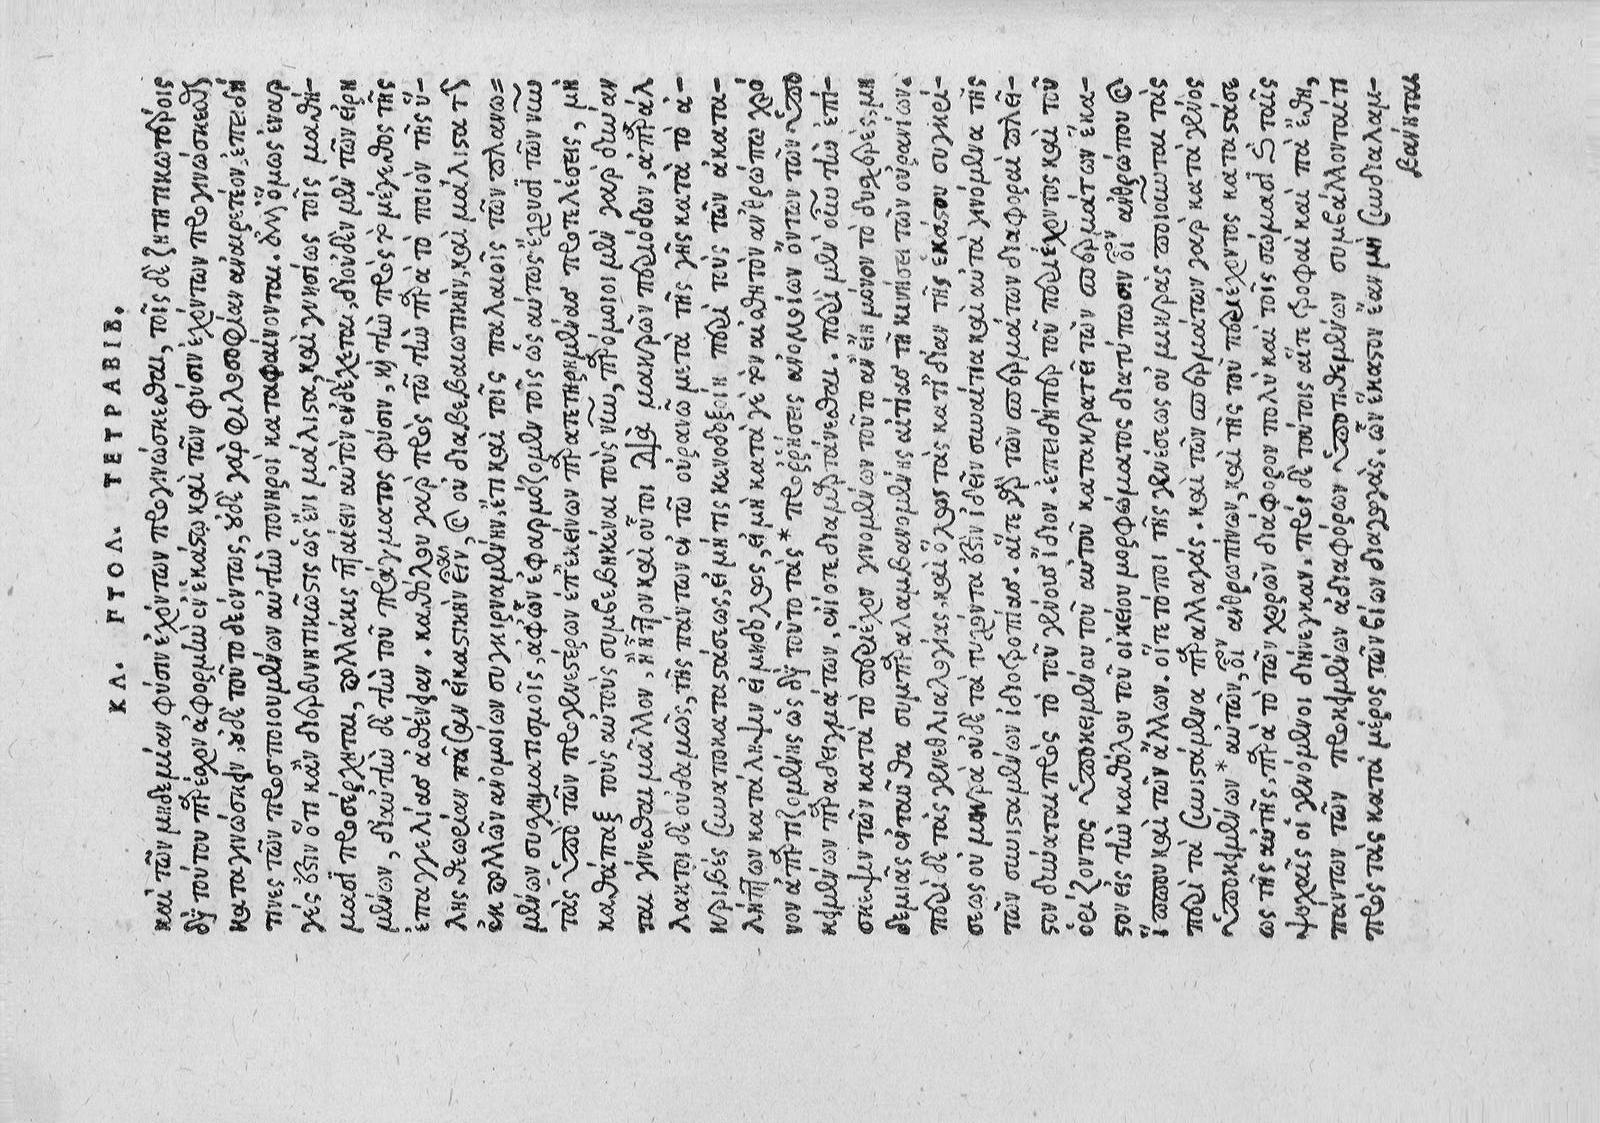 ΚΛ. ΠΤΟΛ. ΤΕΤΡΑΒΙΒ.
καὶ τῶν μηδεμίαν φύσιν ἐχόντων προγινώσκεσθαι, τοῖς δὲ ζητητικωτέροις
διὰ τούτου παρέχον ἀφορμὴν ἐν ἑκάστῳ καὶ τῶν φύσιν ἐχόντων προγινώσκεσθαι
καταγινώσκειν, οὐδὲ τοῦτο δεόντως, οὐδὲ γὰρ φιλοσοφίαν ἀναιρετέον, ἐπειδή
τινες τῶν προσποιουμένων αὐτὴν πονηροὶ καταφαίνονται. ἀλλ' ὅμως ἐναρ
γές ἐστιν ὅτι κἂν διερευνητικῶς τις ὡς ἔνι μάλιστα, καὶ γνησίως τοῖς μαθή-
μασι προσέρχηται, πολλάκις πταίειν αὐτὸν ἐνδέχεται, δι' οὐδὲν μὲν τῶν εἰρη
μένων, δι' αὐτὴν δὲ τὴν τοῦ πράγματος φύσιν, καὶ τὴν πρὸς τὸ μέγεθος τῆς
ἐπαγγελίας ἀσθένειαν. καθόλου γὰρ πρὸς τῷ τὴν περὶ τὸ ποιὸν τῆς ὕ-
λης θεωρίαν πᾶσαν εἰκαστικὴν εἶναι, καὶ οὐ διαβεβαιωτικὴν, καὶ μάλιστα τὴν
ἐκ πολλῶν ἀνομοίων συγκιρναμένην, ἔτι καὶ τοῖς παλαιοῖς τῶν πλανω=
μένων συσχηματισμοῖς, ἀφ' ὧν ἐφαρμόζομεν τοῖς ὡσαύτως ἔχουσι τῶν νῦν
τὰς ὑπὸ τῶν προγενεστέρων ἐπ' ἐκείνων παρατετηρημένας προτελέσεις, μὴ
καθάπαξ τοὺς αὐτοὺς συμβεβηκέναι τοὺς νῦν, παρόμοιοι μὲν γὰρ δύναν
ται γίνεσθαι μᾶλλον, ἢ ἧττον καὶ οὗτοι διὰ μακρῶν περιόδων, ἀπαράλ
λακτοι δὲ οὐδαμῶς, τῆς πάντων ἐν τῷ οὐρανῷ μετὰ τῆς γῆς κατὰ τὸ ἀ-
κριβὲς συναποκαταστάσεως, εἰ μή τις κενοδοξοίη περὶ τὴν τῶν ἀκατα-
λήπτων κατάληψιν εἰ μηδόλως, εἰ μὴ κατά γε τὸν αἰσθητὸν ἀνθρώπῳ χρό
νον ἀπαρτιζομένης ὡς διὰ τοῦτο τὰς * προῤῥήσεις ἀνομοίων ὄντων τῶν ὑπο
κειμένων παραδειγμάτων, ἐνίοτε διαμαρτάνεσθαι. περὶ μὲν οὖν τὴν ἐπί-
σκεψιν τῶν κατὰ τὸ περιέχον γινομένων τοῦτο ἂν εἴη μόνον τὸ δυσχερές, μη
δεμιᾶς ἐνταῦθα συμπαραλαμβανομένης αἰτίας τῇ κινήσει τῶν οὐρανίων.
περὶ δὲ τὰς γενεθλιαλογίας, καὶ ὅλως τὰς κατ' ἰδίαν τῆς ἑκάστου συγκρί-
σεως οὐ μικρὰ οὐδὲ τὰ τυχόντα ἐστὶν ἰδεῖν συναίτια καὶ αὐτὰ γινόμενα τῆς
τῶν συνισταμένων ἰδιοτροπίας. αἵτε γὰρ τῶν σπερμάτων διαφοραὶ πλεῖ-
στον δύνανται πρὸς τὸ τοῦ γένους ἴδιον. ἐπειδήπερ τοῦ περιέχοντος καὶ τοῦ
ὁρίζοντος ὑποκειμένου τοῦ αὐτοῦ κατακρατεῖ τῶν σπερμάτων ἕκα-
στον εἰς τὴν καθόλου τοῦ οἰκείου μορφώματος διατύπωσιν οἷον ἀνθρώπου καὶ
ἵππου καὶ τῶν ἄλλων. οἵ τε τόποι τῆς γενέσεως οὐ μικρὰς ποιοῦνται τὰς
περὶ τὰ συνιστάμενα παραλλαγάς. καὶ τῶν σπερμάτων γὰρ κατὰ γένος
ὑποκειμένων * αὐτῶν, οἷον ἀνθρωπίνων, καὶ τῆς τοῦ περιέχοντος καταστάσε
ως τῆς αὐτῆς, παρὰ τὸ τῶν χωρῶν διάφορον πολὺ καὶ τοῖς σώμασι καὶ ταῖς
ψυχαῖς οἱ γενόμενοι διήνεγκαν. πρὸς δὲ τούτοις αἵτε τροφαὶ καὶ τὰ ἔθη,
πάντων τῶν προκειμένων ἀδιαφόρων ὑποτιθεμένων συμβάλλονταί τι
πρὸς τὰς κατὰ μέρος τῶν βίων διαγωγάς. ὧν ἕκαστον ἐὰν μὴ συνδιαλαμ-
βάνηται